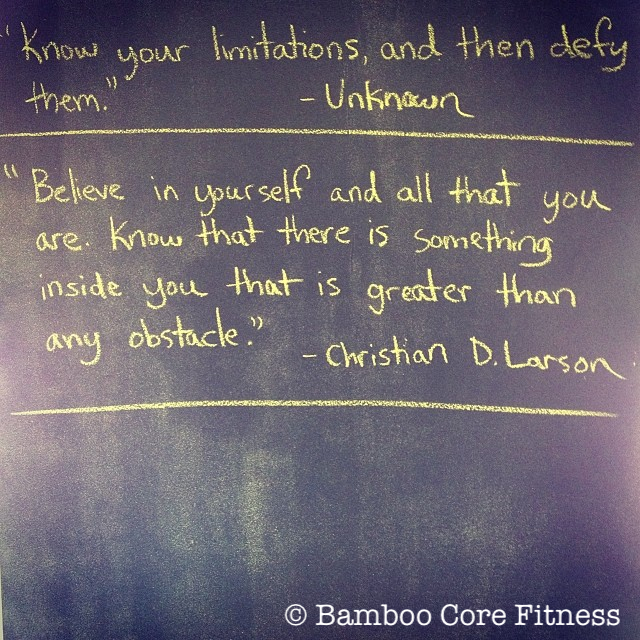 "Know your limitations, and then defy
them."   - Unknown
"Believe in yourself and all that you
are. Know that there is something
inside you that is greater than
any obstacle."
- Christian D. Larson
© Bamboo Core Fitness